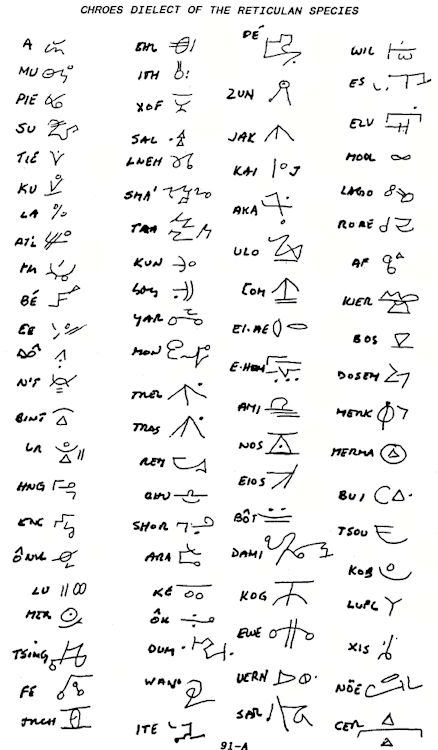 CHROES DIELECT OF THE RETICULAN SPECIES
A
MU
PIE
SU
TIE
KU
LA
ATL
BÉ
EE
DÔ
N'T
BINT
LR
HNG
ÔNK
LU
MER
TSING
FE
EHL
ITH
XOF
SAL
LNEH
SMA'
TAA
KUN
YAR
MON
TREL
TROS
REM
SHOR
ARA
KÉ
ÔK
DUM
ITE
DÉ
ZUN
JAK
KAI
AKA
ULO
EI·AE
AMI
NOS
EIOS
BÔT
DAMI
KOG
EWE
VERN
SAR
WIL
ES
ELV
MOOL
LAGO
RORE
AF
KIER
BOS
DOSEM
MERK
MERMA
BUI
TSOU
KOB
LUPL
XIS
NÖE
CER
91-A